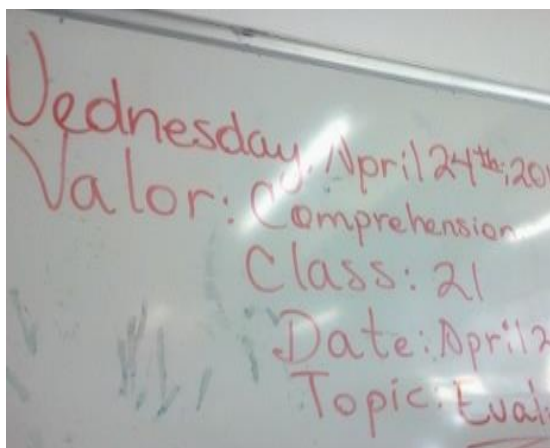 Wednesday, April 24th, 201
Valor: Comprehension
Class: 21
Date: April 2
Topic: Eval